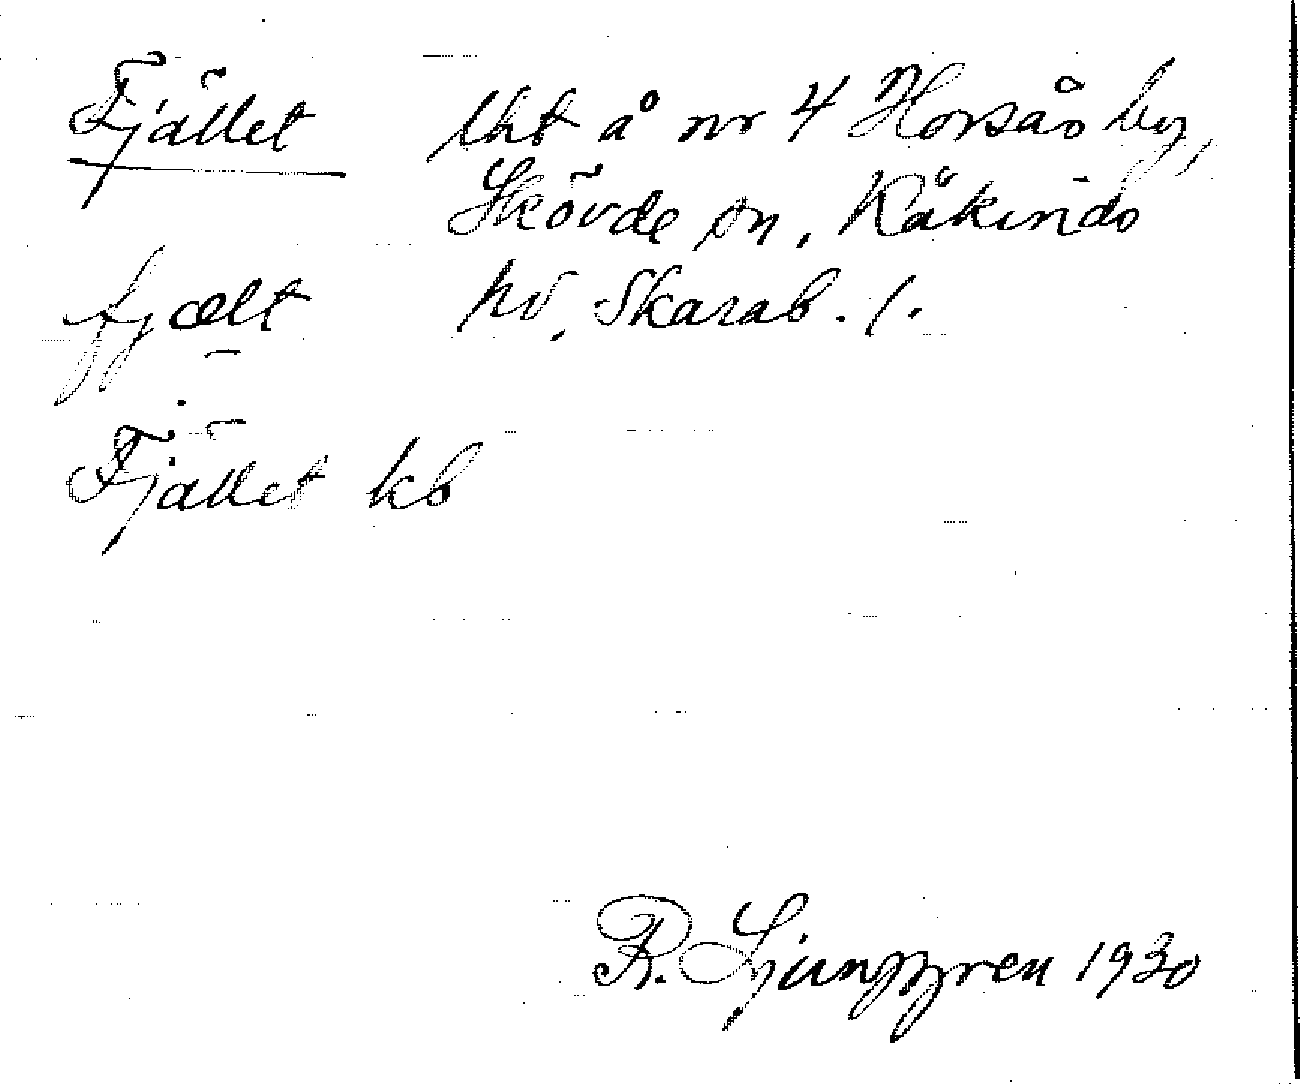 Fjället lht å nr 4 Horsås by,
Skövde sn, Kåkinds
fjælt hd, Skarab. l.
Fjället kb
R. Ljunggren 1930